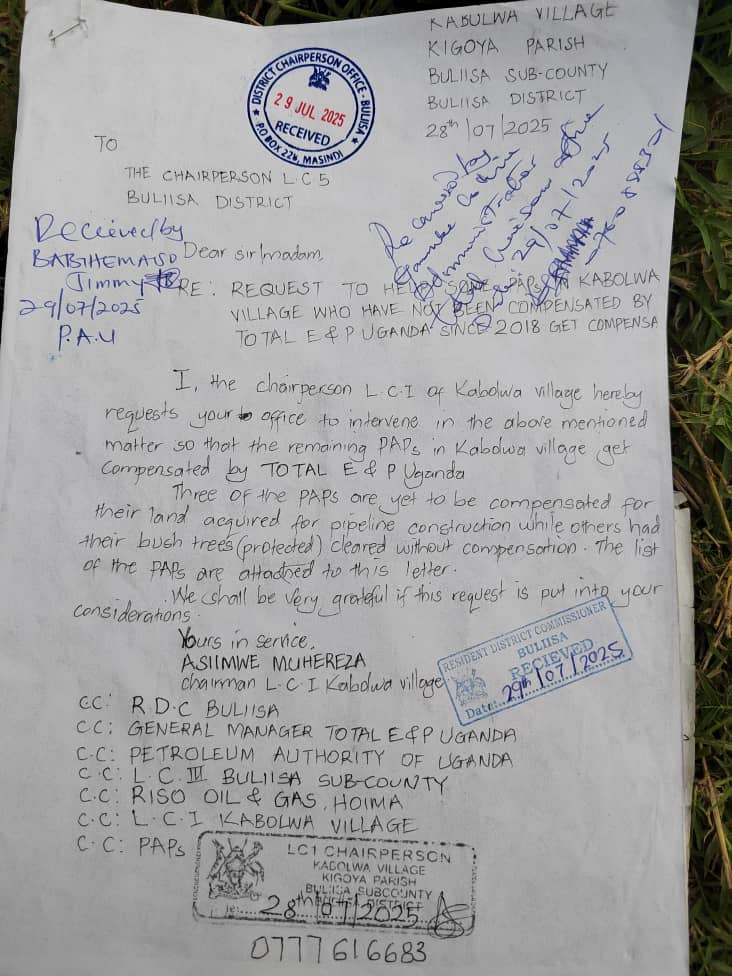 KABULWA VILLAGE
KIGOYA PARISH
BULIISA SUB-COUNTY
BULIISA DISTRICT
28th/07/2025
DISTRICT CHAIRPERSON OFFICE - BULIISA
29 JUL 2025
RECEIVED
P.O BOX 228, MASINDI
TO
THE CHAIRPERSON L.C 5
BULIISA DISTRICT
Received by
Administrator
29/07/2025
Recieved by
Jimmy
29/07/2025
P.A.U
Dear sir/madam,
RE: REQUEST TO HELP SOME PAPs KABOLWA
VILLAGE WHO HAVE NOT BEEN COMPENSATED BY
TOTAL E & P UGANDA SINCE 2018 GET COMPENSA
I, the chairperson L.C.I of Kabolwa village hereby
requests your office to intervene in the above mentioned
matter so that the remaining PAPs in Kabolwa village get
compensated by TOTAL E & P Uganda
Three of the PAPs are yet to be compensated for
their land acquired for pipeline construction while others had
their bush trees (protected) cleared without compensation. The list
of the PAPs are attached to this letter.
We shall be very grateful if this request is put into your
considerations.
Yours in service,
ASIIMWE MUHEREZA
chairman L.C.I Kabolwa village
RESIDENT DISTRICT COMMISSIONER
BULIISA
RECIEVED
Date: 29th/07/2025
CC: R.D.C BULIISA
CC: GENERAL MANAGER TOTAL E & P UGANDA
C.C: PETROLEUM AUTHORITY OF UGANDA
C.C: L.C.III BULIISA SUB-COUNTY
C.C: RISO OIL & GAS, HOIMA
C.C: L.C.I KABOLWA VILLAGE
C.C: PAPs
LC1 CHAIRPERSON
KABOLWA VILLAGE
KIGOYA PARISH
BULIISA SUBCOUNTY
28th/07/2025
0777616683